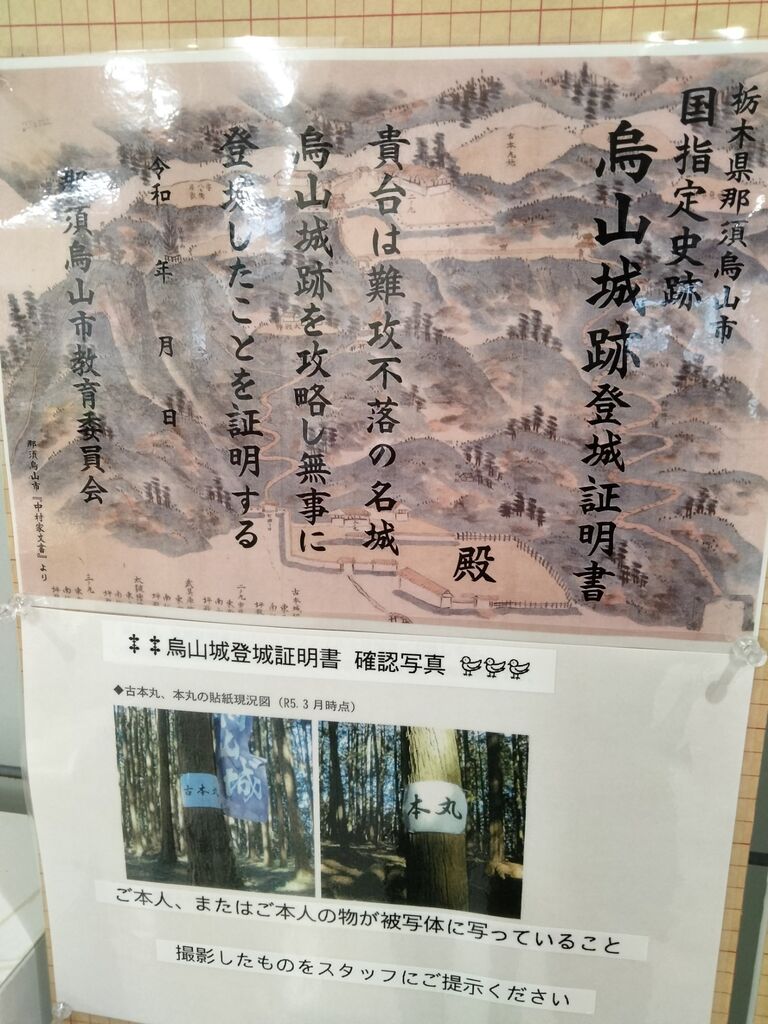 栃木県那須烏山市
国指定史跡
烏山城跡登城証明書
殿
貴台は難攻不落の名城
烏山城跡を攻略し無事に
登城したことを証明する
令和 年 月 日
那須烏山市教育委員会
那須烏山市『中村家文書』より
烏山城登城証明書 確認写真
◆古本丸、本丸の貼紙現況図（R5.3月時点）
古本丸
城
本丸
ご本人、またはご本人の物が被写体に写っていること
撮影したものをスタッフにご提示ください